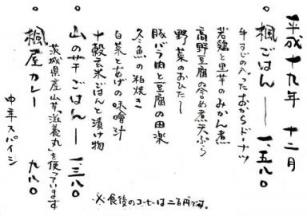 平成十九年 十二月
○楓ごはん ― 一、五八〇
牛すじの入ったおからドーナツ
若鶏と里芋のみかん煮
高野豆腐の含め煮天ぷら
野菜のおひたし
豚バラ肉と豆腐の田楽
冬魚の粕焼き
白菜とあげの味噌汁
十穀玄米ごはんと漬け物
○山の芋ごはん ― 一、三八〇
茨城県産山芋、滋養丸を使っています
○楓屋カレー 九八〇
中辛スパイシー
※食後のコーヒーは二百円です。